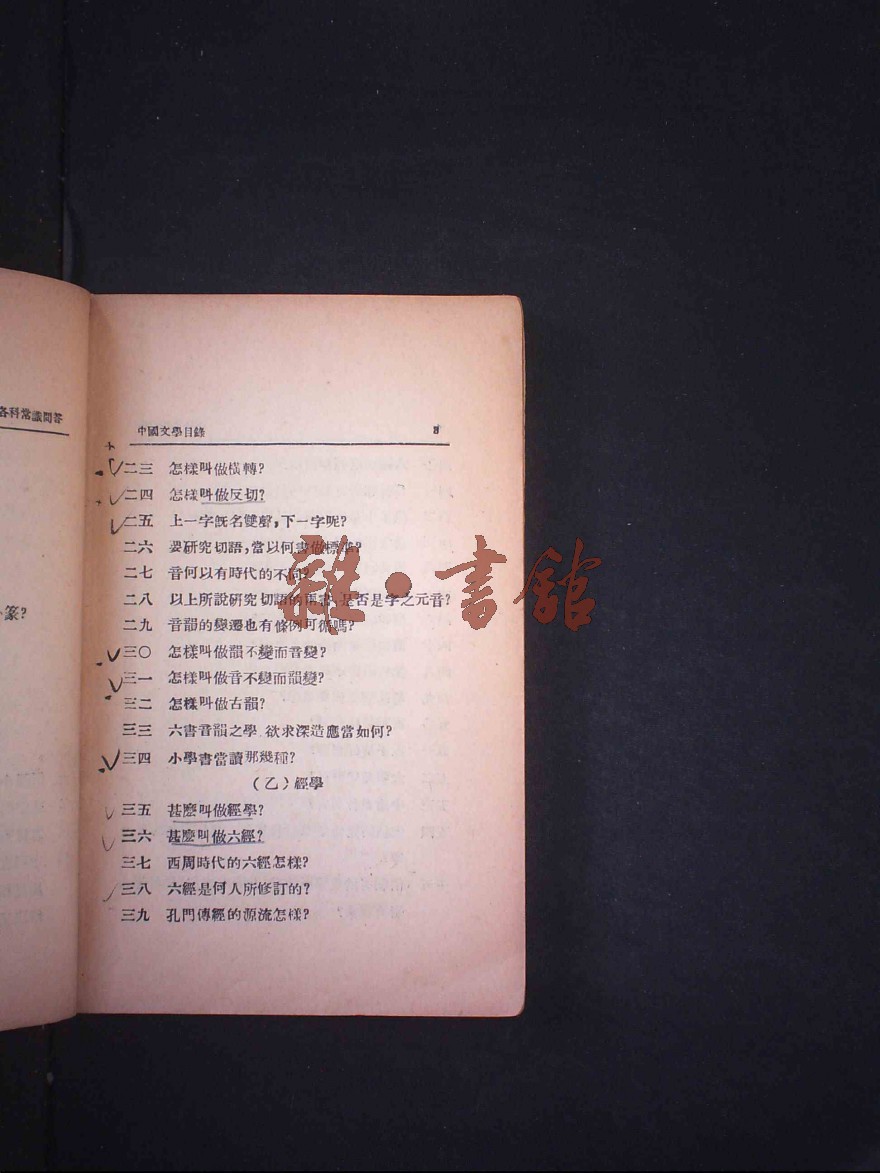 各科常識問答
篆?
中國文學目錄 3
二三 怎樣叫做橫轉?
二四 怎樣叫做反切?
二五 上一字旣名雙聲,下一字呢?
二六 要研究切語,當以何書做標準?
二七 音何以有時代的不同?
二八 以上所說研究切語的兩書,是否是字之元音?
二九 音韻的變遷也有條例可循嗎?
三〇 怎樣叫做韻不變而音變?
三一 怎樣叫做音不變而韻變?
三二 怎樣叫做古韻?
三三 六書音韻之學 欲求深造應當如何?
三四 小學書當讀那幾種?
(乙)經學
三五 甚麼叫做經學?
三六 甚麼叫做六經?
三七 西周時代的六經怎樣?
三八 六經是何人所修訂的?
三九 孔門傳經的源流怎樣?
雜·書館